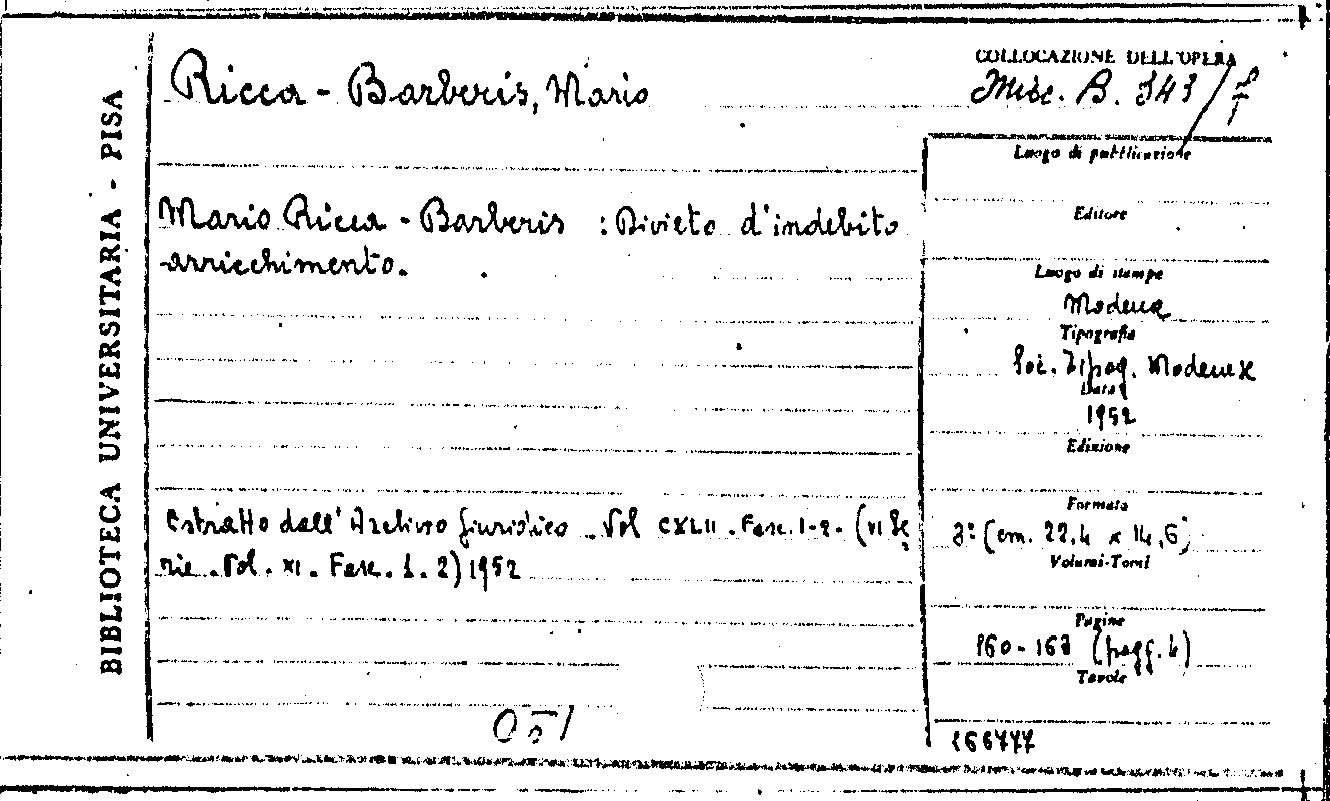 BIBLIOTECA UNIVERSITARIA - PISA
Ricca - Barberis, Mario
COLLOCAZIONE DELL'OPERA
Misc. B. 343/
Mario Ricca - Barberis : Divieto d'indebito
arricchimento.
Estratto dall'Archivio giuridico - Vol CXLII. Fasc. 1-2. (VI Se
rie. Vol. XI. Fasc. 1. 2) 1952
Luogo di pubblicazione
Editore
Luogo di stampa
Modena
Tipografia
Soc. Tipog. Modenese
Data
1952
Edizione
Formato
8° (cm. 22,4 x 14,6)
Volumi-Tomi
Pagine
160-163 (pagg. 4)
Tavole
166777